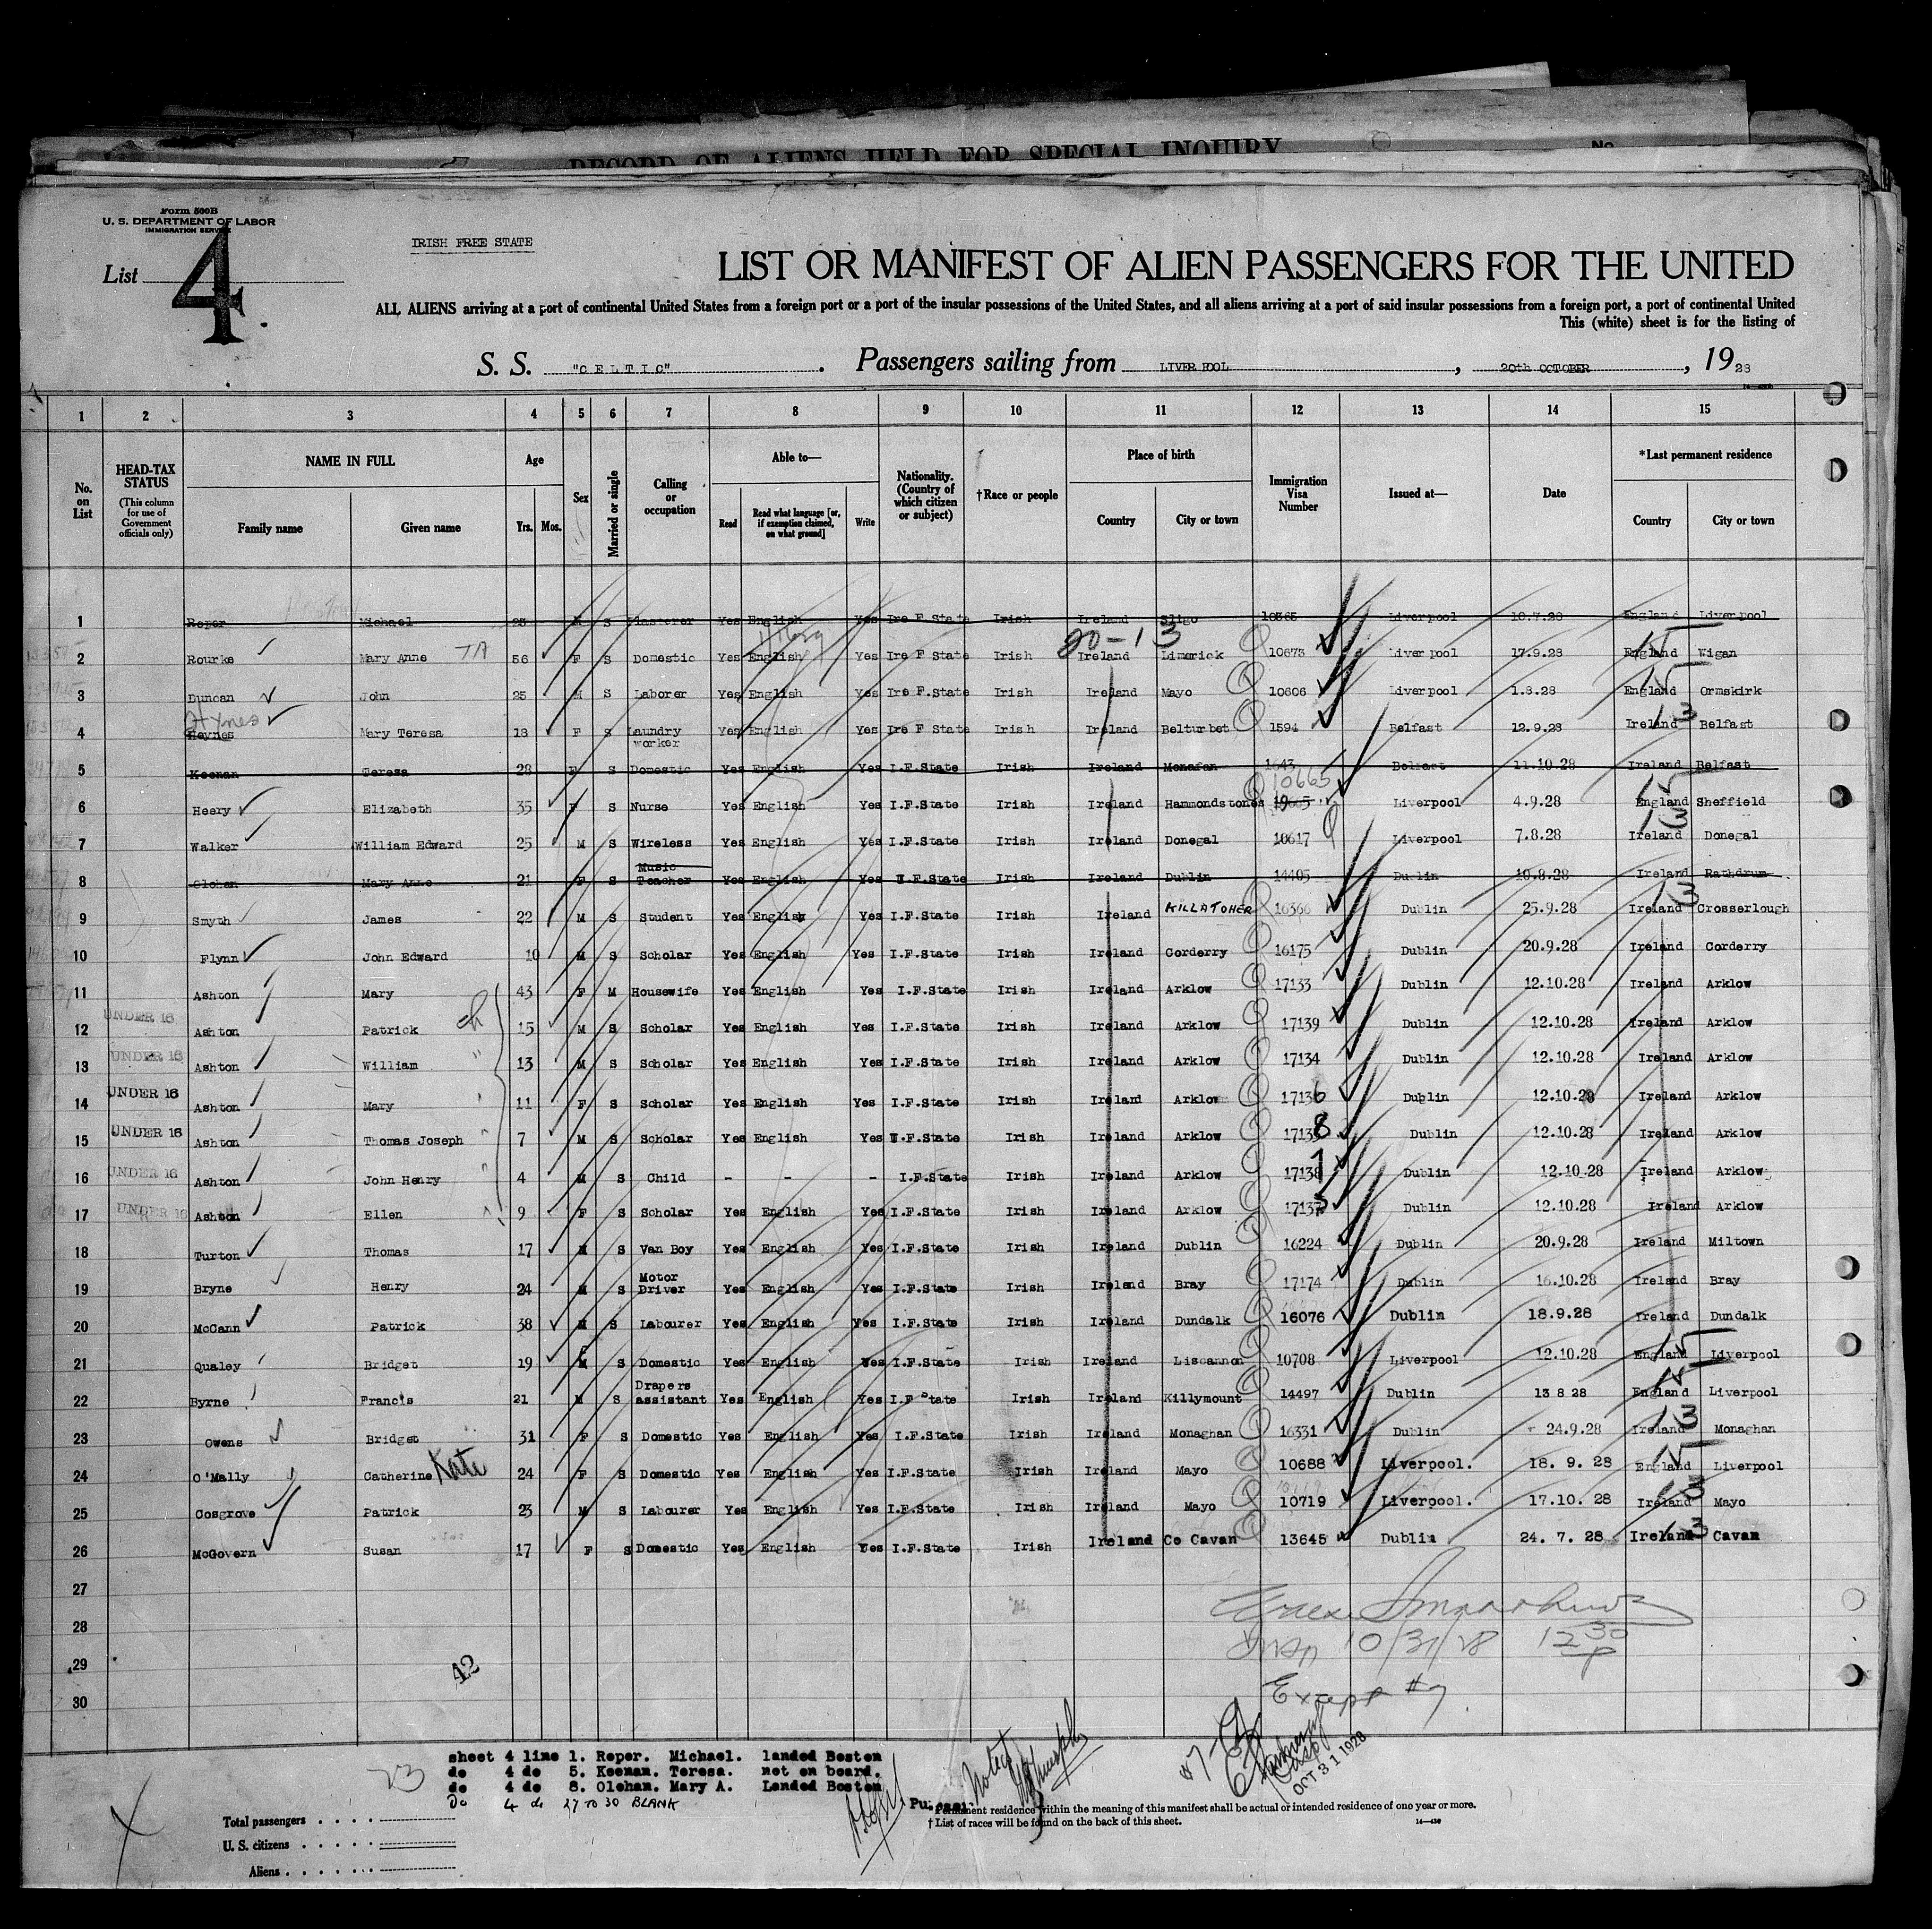 RECORD OF ALIENS HELD FOR SPECIAL INQUIRY
No.
Form 500B
U. S. DEPARTMENT OF LABOR
IMMIGRATION SERVICE
List 4
IRISH FREE STATE
LIST OR MANIFEST OF ALIEN PASSENGERS FOR THE UNITED
ALL ALIENS arriving at a port of continental United States from a foreign port or a port of the insular possessions of the United States, and all aliens arriving at a port of said insular possessions from a foreign port, a port of continental United
This (white) sheet is for the listing of
S. S. "CELTIC". Passengers sailing from LIVERPOOL, 20th OCTOBER, 1928
1 2 3 4 5 6 7 8 9 10 11 12 13 14 15
No. on List
HEAD-TAX STATUS
(This column for use of Government officials only)
NAME IN FULL
Family name Given name
Age
Yrs. Mos.
Sex
Married or single
Calling or occupation
Able to—
Read
Read what language [or, if exemption claimed, on what ground]
Write
Nationality. (Country of which citizen or subject)
†Race or people
Place of birth
Country City or town
Immigration Visa Number
Issued at—
Date
*Last permanent residence
Country City or town
1 Roper Michael 23 M S Plasterer Yes English Yes Ire F State Irish Ireland Sligo 10365 Liverpool 10.7.28 England Liverpool
20-13
2 Rourke Mary Anne 56 F S Domestic Yes English Yes Ire F State Irish Ireland Limerick 10673 Liverpool 17.9.28 England Wigan 15
3 Duncan John 25 M S Laborer Yes English Yes Ire F.State Irish Ireland Mayo 10606 Liverpool 1.8.28 England Ormskirk 15
Hynes
4 Heynes Mary Teresa 18 F S Laundry worker Yes English Yes Ire F State Irish Ireland Belturbet 1594 Belfast 12.9.28 Ireland Belfast 13
5 Keenan Teresa 28 F S Domestic Yes English Yes I.F.State Irish Ireland Monafan 1643 Belfast 11.10.28 Ireland Belfast
10665
6 Heery Elizabeth 35 F S Nurse Yes English Yes I.F.State Irish Ireland Hammondstones Liverpool 4.9.28 England Sheffield 15
7 Walker William Edward 25 M S Wireless Yes English Yes I.F.State Irish Ireland Donegal 10617 Liverpool 7.8.28 Ireland Donegal 13
8 Olohan Mary Anne 21 F S Music Teacher Yes English Yes I.F.State Irish Ireland Dublin 14405 Dublin 10.8.28 Ireland Rathdrum
9 Smyth James 22 M S Student Yes English Yes I.F.State Irish Ireland KILLATOHER 16366 Dublin 25.9.28 Ireland Crosserlough 13
10 Flynn John Edward 10 M S Scholar Yes English Yes I.F.State Irish Ireland Corderry 16175 Dublin 20.9.28 Ireland Corderry
11 Ashton Mary 43 F M Housewife Yes English Yes I.F.State Irish Ireland Arklow 17133 Dublin 12.10.28 Ireland Arklow
12 UNDER 16 Ashton Patrick ch 15 M S Scholar Yes English Yes I.F.State Irish Ireland Arklow 17139 Dublin 12.10.28 Ireland Arklow
13 UNDER 16 Ashton William " 13 M S Scholar Yes English Yes I.F.State Irish Ireland Arklow 17134 Dublin 12.10.28 Ireland Arklow
14 UNDER 16 Ashton Mary " 11 F S Scholar Yes English Yes I.F.State Irish Ireland Arklow 17136 Dublin 12.10.28 Ireland Arklow
15 UNDER 16 Ashton Thomas Joseph " 7 M S Scholar Yes English Yes I.F.State Irish Ireland Arklow 17138 Dublin 12.10.28 Ireland Arklow
16 UNDER 16 Ashton John Henry " 4 M S Child - - - I.F.State Irish Ireland Arklow 17137 Dublin 12.10.28 Ireland Arklow
17 UNDER 16 Ashton Ellen " 9 F S Scholar Yes English Yes I.F.State Irish Ireland Arklow 17135 Dublin 12.10.28 Ireland Arklow
18 Turton Thomas 17 M S Van Boy Yes English Yes I.F.State Irish Ireland Dublin 16224 Dublin 20.9.28 Ireland Miltown
19 Bryne Henry 24 M S Motor Driver Yes English Yes I.F.State Irish Ireland Bray 17174 Dublin 16.10.28 Ireland Bray
20 McCann Patrick 38 M S Labourer Yes English Yes I.F.State Irish Ireland Dundalk 16076 Dublin 18.9.28 Ireland Dundalk
21 Qualey Bridget 19 F S Domestic Yes English Yes I.F.State Irish Ireland Liscannon 10708 Liverpool 12.10.28 England Liverpool 15
22 Byrne Francis 21 M S Drapers assistant Yes English Yes I.F State Irish Ireland Killymount 14497 Dublin 13 8 28 England Liverpool 15
23 Owens Bridget 31 F S Domestic Yes English Yes I.F.State Irish Ireland Monaghan 16331 Dublin 24.9.28 Ireland Monaghan 13
24 O'Mally Catherine Kate 24 F S Domestic Yes English Yes I.F.State Irish Ireland Mayo 10688 Liverpool. 18. 9. 28 England Liverpool 15
25 Cosgrove Patrick 23 M S Labourer Yes English Yes I.F.State Irish Ireland Mayo 10719 Liverpool. 17.10. 28 Ireland Mayo 13
26 McGovern Susan 17 F S Domestic Yes English Yes I.F.State Irish Ireland Co Cavan 13645 Dublin 24. 7. 28 Ireland Cavan 13
27
28
10/31/28 12 30 P
29
30
42
Except #7
sheet 4 line 1. Roper. Michael. landed Boston
do 4 do 5. Keenan. Teresa. not on board.
do 4 do 8. Olohan. Mary A. Landed Boston
Do 4 do 27 TO 30 BLANK
23
Noted
Murphy
#7
OCT 31 1928
Purser
Total passengers
U. S. citizens
Aliens
* Permanent residence within the meaning of this manifest shall be actual or intended residence of one year or more.
† List of races will be found on the back of this sheet.